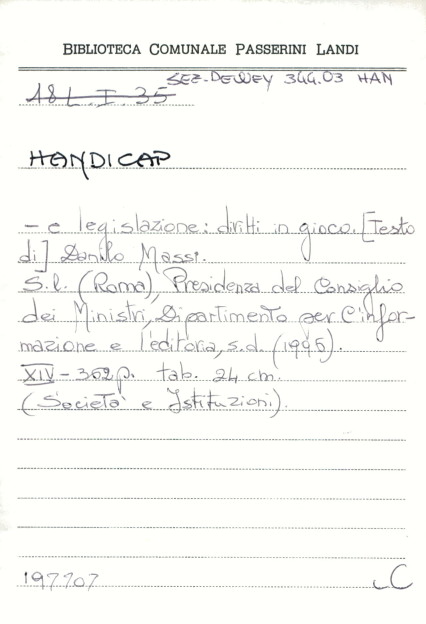 BIBLIOTECA COMUNALE PASSERINI LANDI
SEZ. DEWEY 344.03 HAN
18 L. I. 35
HANDICAP
- e legislazione: diritti in gioco. [Testo
di] Danilo Massi.
S.l. (Roma), Presidenza del Consiglio
dei Ministri, Dipartimento per l'infor-
mazione e l'editoria, s.d. (1995).
XIV - 362 p. tab. 24 cm.
(Società e Istituzioni).
197707
C